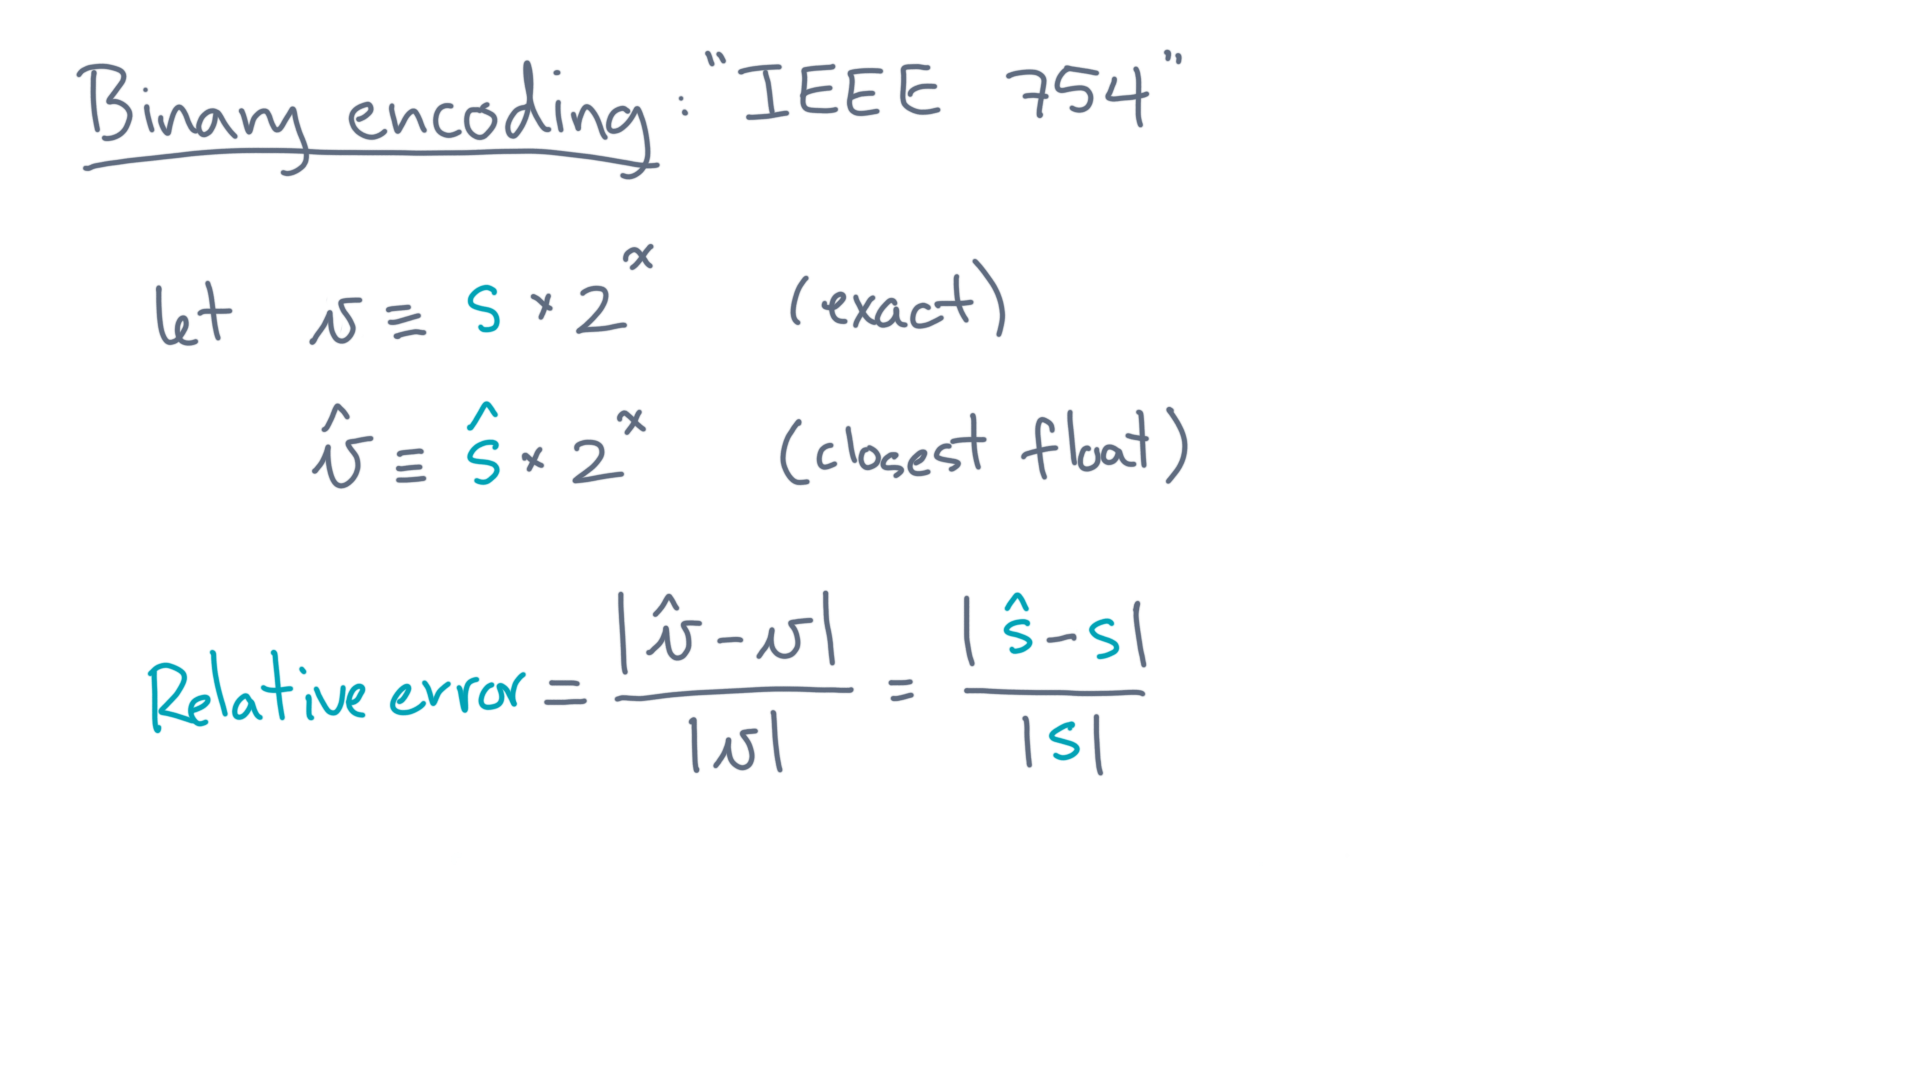 Binary encoding: "IEEE 754"
let v ≡ s × 2^x (exact)
v̂ ≡ ŝ × 2^x (closest float)
Relative error = |v̂ - v| / |v| = |ŝ - s| / |s|